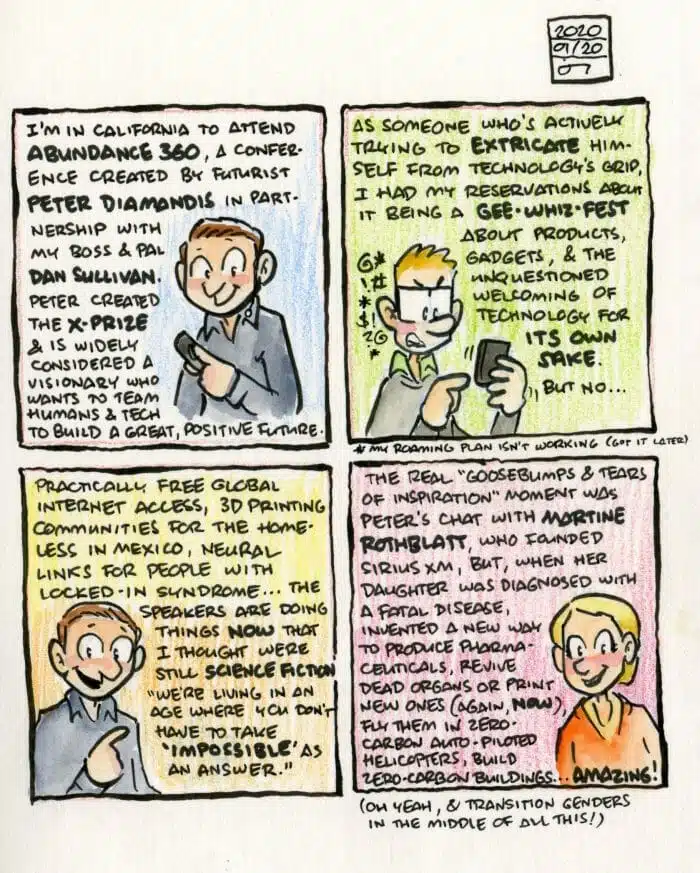 2020
01/20
I'M IN CALIFORNIA TO ATTEND
ABUNDANCE 360, A CONFER-
ENCE CREATED BY FUTURIST
PETER DIAMANDIS IN PART-
NERSHIP WITH
MY BOSS & PAL
DAN SULLIVAN.
PETER CREATED
THE X-PRIZE
& IS WIDELY
CONSIDERED A
VISIONARY WHO
WANTS TO TEAM
HUMANS & TECH
TO BUILD A GREAT, POSITIVE FUTURE.
AS SOMEONE WHO'S ACTIVELY
TRYING TO EXTRICATE HIM-
SELF FROM TECHNOLOGY'S GRIP,
I HAD MY RESERVATIONS ABOUT
IT BEING A GEE-WHIZ-FEST
ABOUT PRODUCTS,
GADGETS, & THE
UNQUESTIONED
WELCOMING OF
TECHNOLOGY FOR
ITS OWN
SAKE.
BUT NO...
@*
!#
*
$!
?@
*
* MY ROAMING PLAN ISN'T WORKING (GOT IT LATER)
PRACTICALLY FREE GLOBAL
INTERNET ACCESS, 3D PRINTING
COMMUNITIES FOR THE HOME-
LESS IN MEXICO, NEURAL
LINKS FOR PEOPLE WITH
LOCKED-IN SYNDROME... THE
SPEAKERS ARE DOING
THINGS NOW THAT
I THOUGHT WERE
STILL SCIENCE FICTION
"WE'RE LIVING IN AN
AGE WHERE YOU DON'T
HAVE TO TAKE
'IMPOSSIBLE' AS
AN ANSWER."
THE REAL "GOOSEBUMPS & TEARS
OF INSPIRATION" MOMENT WAS
PETER'S CHAT WITH MARTINE
ROTHBLATT, WHO FOUNDED
SIRIUS XM, BUT, WHEN HER
DAUGHTER WAS DIAGNOSED WITH
A FATAL DISEASE,
INVENTED A NEW WAY
TO PRODUCE PHARMA-
CEUTICALS, REVIVE
DEAD ORGANS OR PRINT
NEW ONES (AGAIN, NOW),
FLY THEM IN ZERO-
CARBON AUTO-PILOTED
HELICOPTERS, BUILD
ZERO-CARBON BUILDINGS... AMAZING!
(OH YEAH, & TRANSITION GENDERS
IN THE MIDDLE OF ALL THIS!)